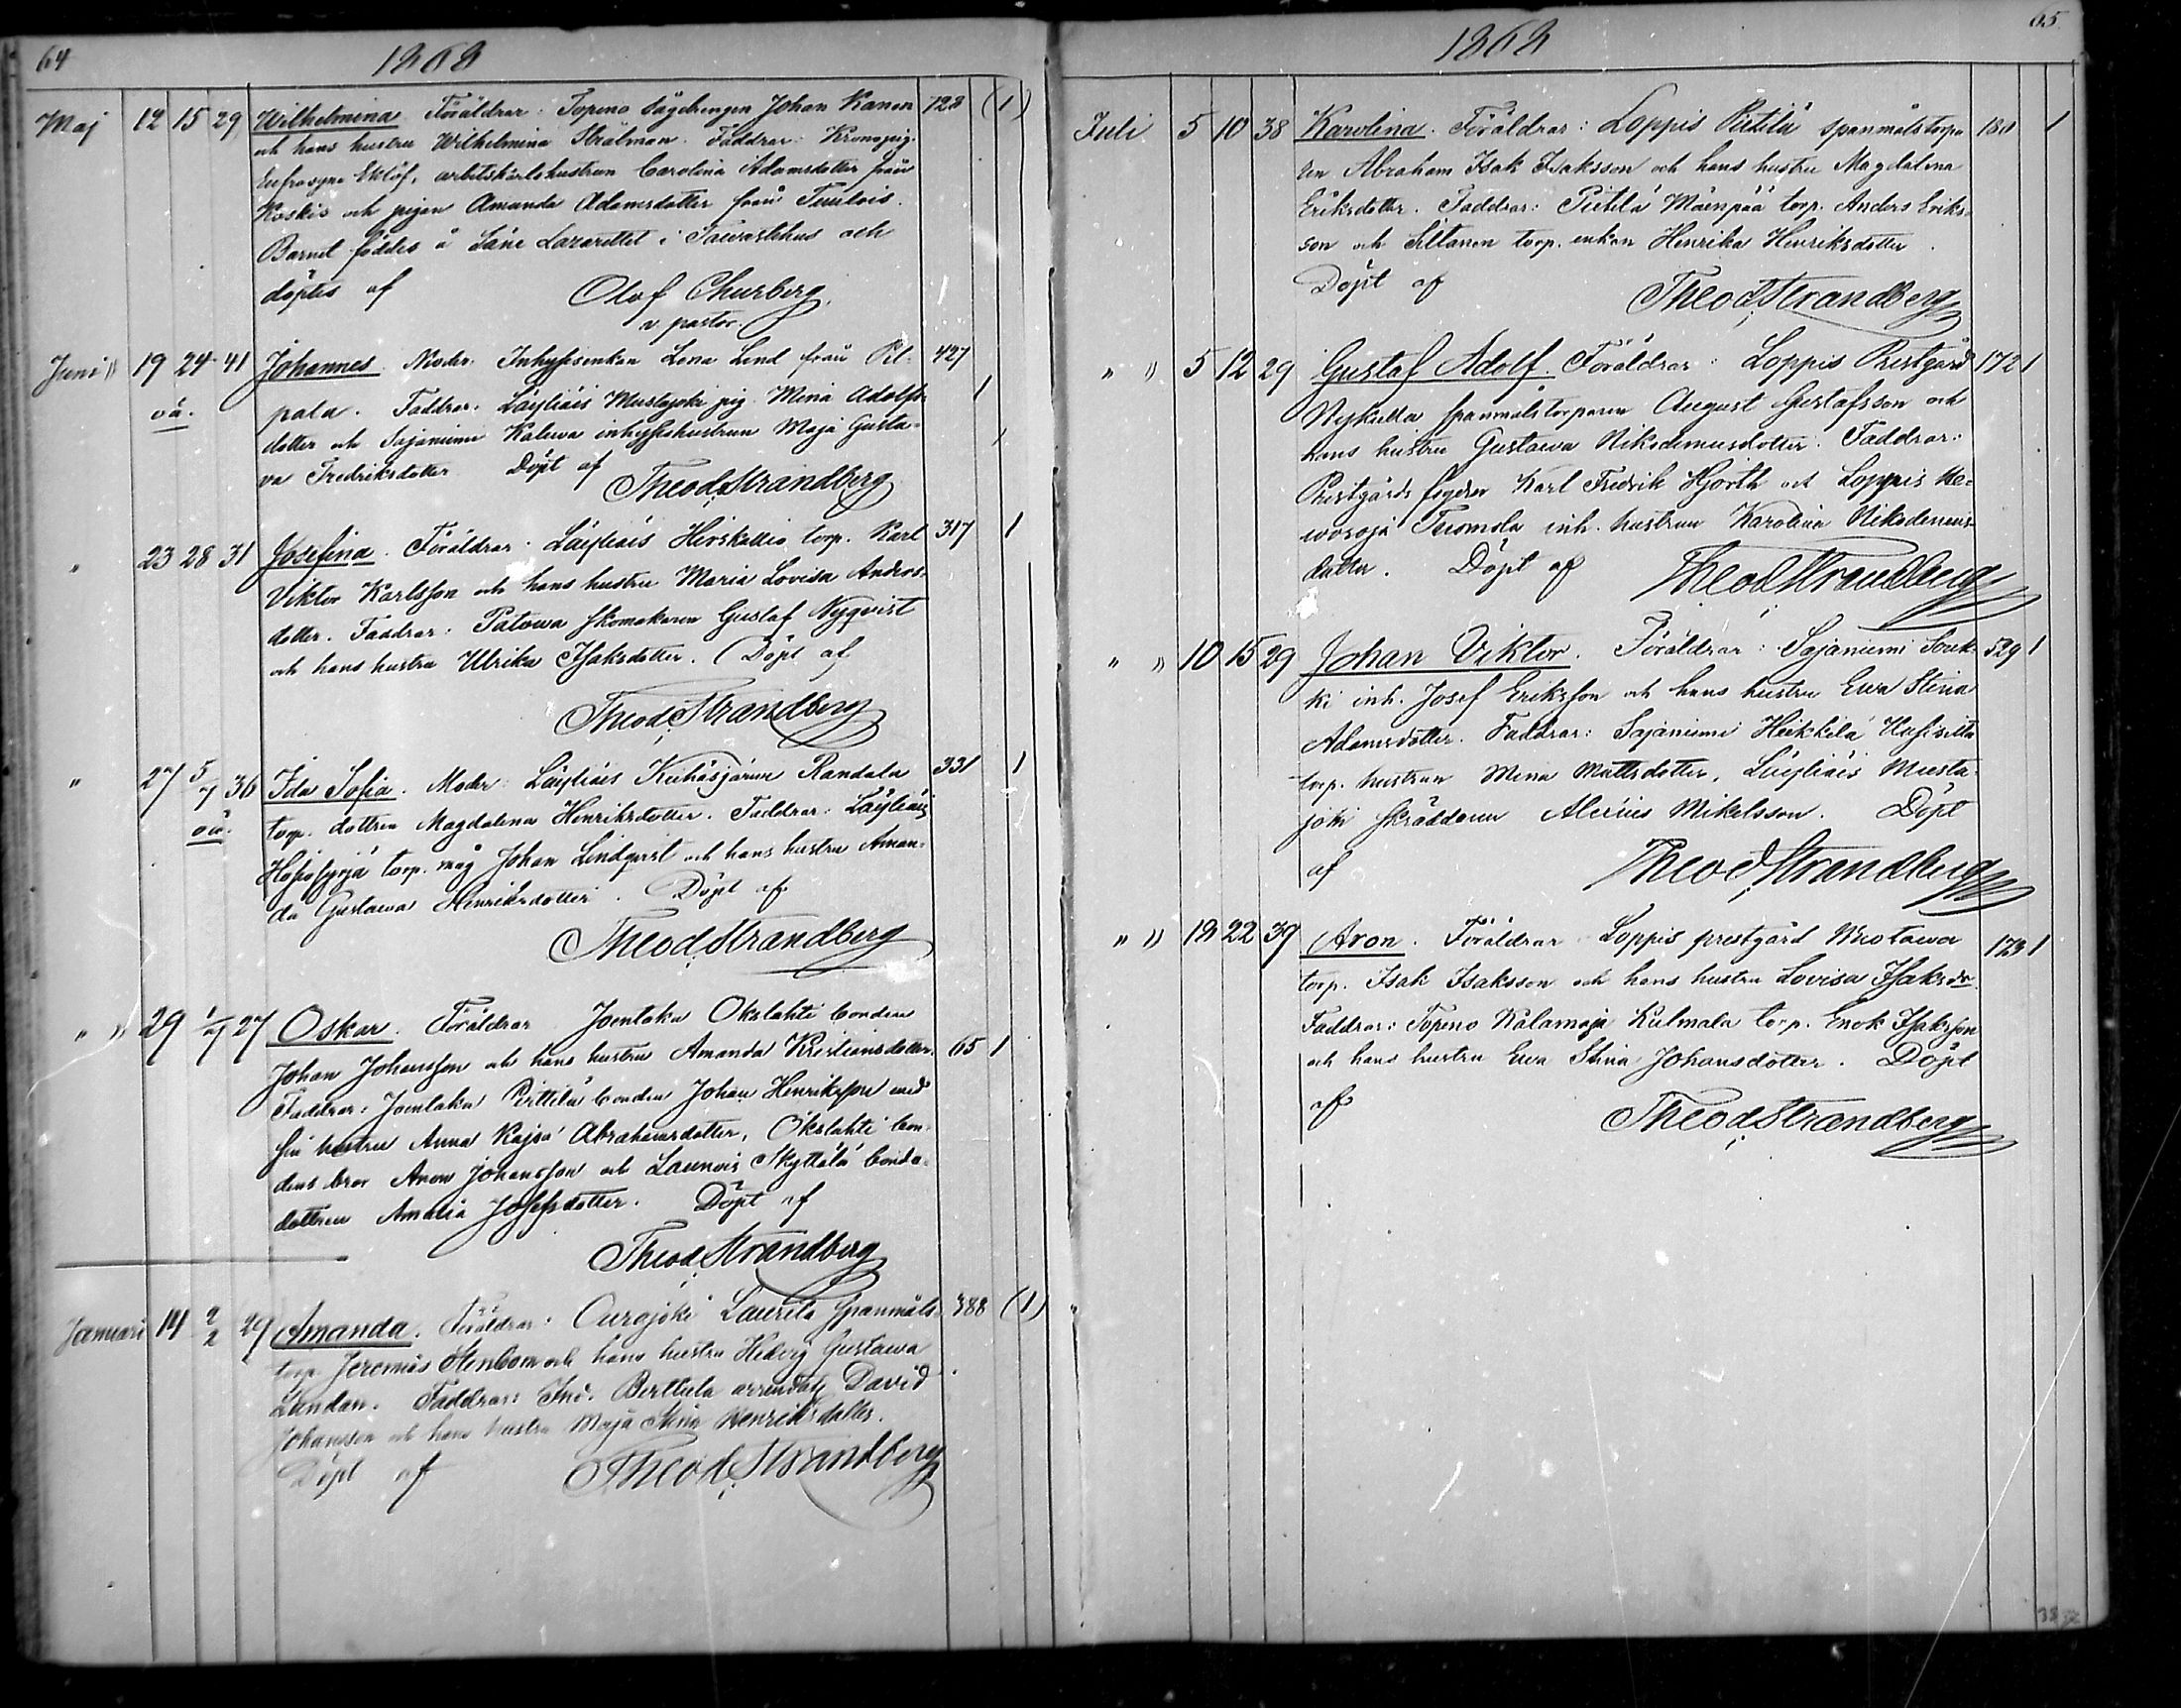 64
1868
Maj 12 15 29 Wilhelmina. Föräldrar: Topeno Sågdrengen Johan Kanon 728 (1)
och hans hustru Wilhelmina Strålman. Faddrar: Kronopig.
Eufrosyne Eklöf, arbetskarlshustrun Carolina Adamsdotter från
Koskis och pigan Amanda Adamsdotter från Teuilois.
Barnet föddes å Läne Lazarettet i Tawastehus och
döptes af Olof Churberg.
v. pastor.
Juni " 19 24 41 Johannes. Moder: Inhysesenkan Lena Lind från Pil- 427
oä. pala. Faddrar: Läyliäis Mustajoki pig. Mina Adolfs- 1
dotter och Sajaniemi Kaluva inhyseshustrun Maja Gusta- 1
va Fredriksdotter. Döpt af
Theod. Strandberg
" 23 28 31 Josefina. Föräldrar: Läyliäis Hirskallio torp. Karl 317 1
Viktor Karlsson och hans hustru Maria Lovisa Anders-
dotter. Faddrar: Patowa skomakaren Gustaf Nyqvist
och hans hustru Ulrika Isaksdotter. Döpt af
Theod. Strandberg
" 27 5/7 36 Ida Sofia. Moder: Läyliäis Keihäsjärwi Randala 331 1
oä. torp. dottren Magdalena Henriksdotter. Faddrar: Läyliäis
torp. måg Johan Lindqvist och hans hustru Aman-
da Gustawa Henriksdotter. Döpt af
Theod. Strandberg
" " 29 1/7 27 Oskar. Föräldrar: Joentaka Okslahti bonden
Johan Johansson och hans hustru Amanda Kristiansdotter. 65 1
Faddrar: Joentaka Pirttilä bonden Johan Henriksson med
sin hustru Anna Kajsa Abrahamsdotter, Okslahti bon-
dens bror Aron Johansson och Launois Skyttälä bonda-
dottren Amalia Josefsdotter. Döpt af
Theod. Strandberg
Januari 14 2/2 29 Amanda. Föräldrar: Ourajoki Laurila spanmåls- 388 (1)
torp. Jeremias Stenbom och hans hustru Hedvig Gustawa
Lundan. Faddrar: Ind. Berttula arrendat. David
Johansson och hans hustru Maja Stina Henriksdotter.
Döpt af Theod. Strandberg
65
1868
Juli 5 10 38 Karolina. Föräldrar: Loppis Pietilä spanmålstorpa- 180 1
ren Abraham Isak Isaksson och hans hustru Magdalena
Eriksdotter. Faddrar: Pietilä Mäenpää torp. Anders Eriks-
son och Siltanen torp. enkan Henrika Henriksdotter.
Döpt af
Theod. Strandberg
" " 5 12 29 Gustaf Adolf. Föräldrar: Loppis Prestgård 172 1
Nykulla spanmålstorparen August Gustafsson och
hans hustru Gustawa Nikodemusdotter. Faddrar:
Prestgårds fogden Karl Fredrik Hjorth och Loppis He-
wosoja Tuomola inh. hustrun Karolina Nikodemus-
dotter. Döpt af Theod. Strandberg
" " 10 15 29 Johan Viktor. Föräldrar: Sajaniemi Souk- 529 1
ki inh. Josef Eriksson och hans hustru Ewa Stina
Adamsdotter. Faddrar: Sajaniemi Heikkilä Uusisilta
torp. hustrun Mina Mattsdotter, Läyliäis Musta-
joki skräddaren Alexius Mikelsson. Döpt
af Theod. Strandberg
" " 18 22 39 Aron. Föräldrar: Loppis prestgård Muotawa 173 1
torp. Isak Isaksson och hans hustru Lovisa Isaksdr
Faddrar: Topeno Kalamaja Kulmala torp. Enok Isaksson
och hans hustru Ewa Stina Johansdotter. Döpt
af Theod. Strandberg